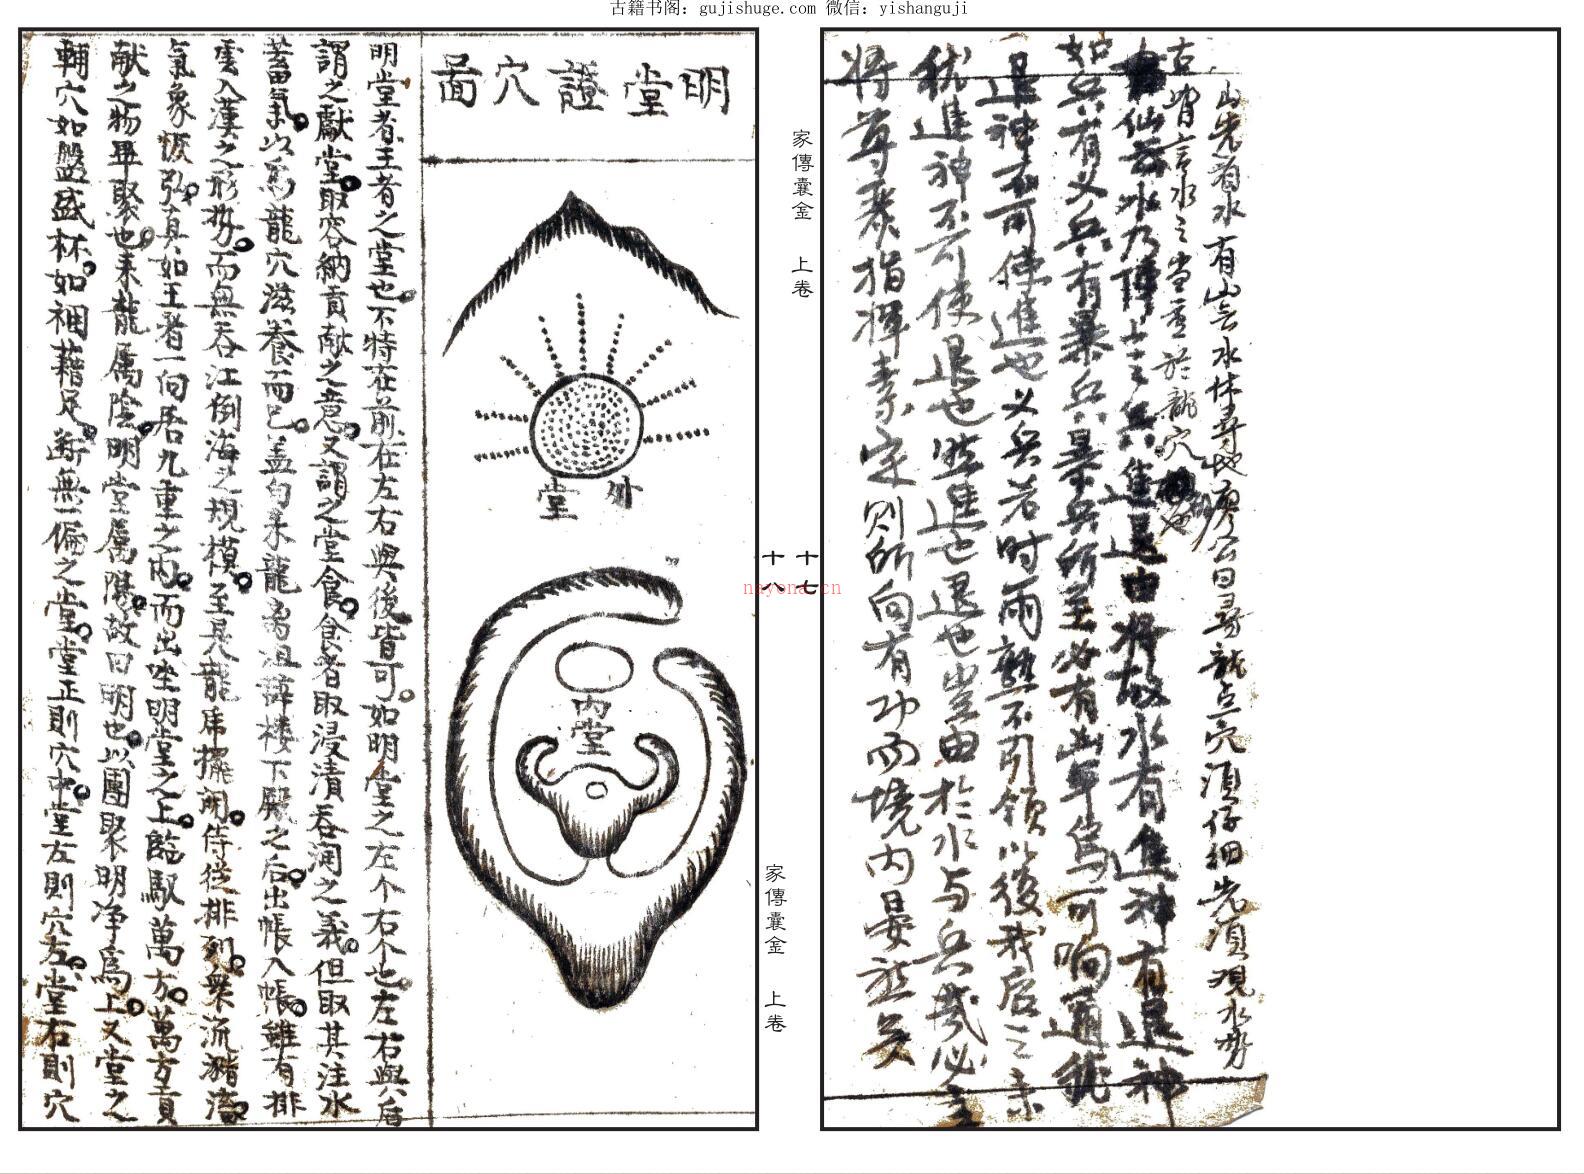 古籍书阁：gujishuge.com 微信：yishanguji
山先看水有山無水休尋地廖公曰尋龍点穴須仔細先須观水势
古皆言水之当重於龍穴
仙云水乃陣上之兵進退由將故水有進神有退神
如兵有义兵有暴兵暴兵所至必有凶年烏可响通犹
退神不可使進也义兵若时雨無不引领以後我后之来
犹進神不可使退也然進也退也岂由於水与兵哉必主
將尊聚指揮素定则所向有功而境内晏然矣
家傳囊金 上卷
十七
十八
家傳囊金 上卷
nayona.cn
明堂證穴圖
外堂
内堂
明堂者王者之堂也不特在前在左右與後皆可如明堂之左个右个也左右與后
謂之獻堂取容納貢献之意又謂之堂食食者取浸清吞润之義但取其注水
蓄氣以為龍穴滋養而已盖自来龍為祖降楼下殿之后出帳入帳雖有排
雲入漢之形势而無吞江倒海之規模至是龍虎擺開侍從排列衆流瀦滀
氣象恢弘真如王者一向居九重之内而出坐明堂之上臨馭萬方萬方貢
献之物畢聚也来龍属陰明堂属陽故曰明也以團聚明净為上又堂之
輔穴如盤盛杯如裀藉足断無一偏之堂堂正則穴中堂左則穴左堂右則穴